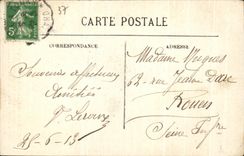 37
CARTE POSTALE
CORRESPONDANCE
ADRESSE
5
Madame
62 rue Jeanne Darc
Rouen
Seine Infre
Souvenirs affectueux
Amitiés
25-6-13